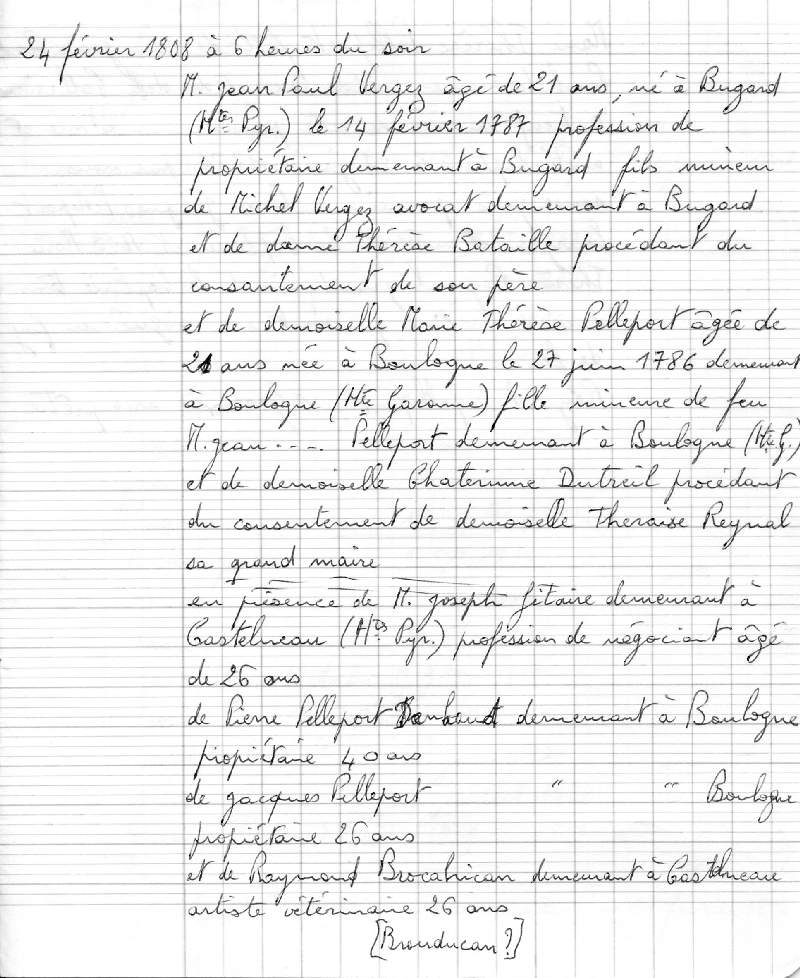 24 février 1808 à 6 heures du soir
M. jean Paul Vergez âgé de 21 ans, né à Bugard
(Htes Pyr.) le 14 février 1787 profession de
propriétaire demeurant à Bugard fils mineur
de Michel Vergez avocat demeurant à Bugard
et de dame Thérèse Bataille procédant du
consantement de son père
et de demoiselle Marie Thérèse Pelleport âgée de
21 ans née à Boulogne le 27 juin 1786 demeurant
à Boulogne (Hte Garonne) fille mineure de feu
M. jean .... Pelleport demeurant à Boulogne (Hte G.)
et de demoiselle Chaterinne Dutreil procédant
du consentement de demoiselle Theraise Reynal
sa grand maire
en présence de M. joseph fitaire demeurant à
Castelneau (Htes Pyr.) profession de négociant âgé
de 26 ans
de Pierre Pelleport demeurant à Boulogne
propiétaire 40 ans
de jacques Pelleport " " Boulogne
propiétaire 26 ans
et de Raymond Brocahican demeurant à Castelneau
artiste vétérinaire 26 ans
[Brouducan ?]